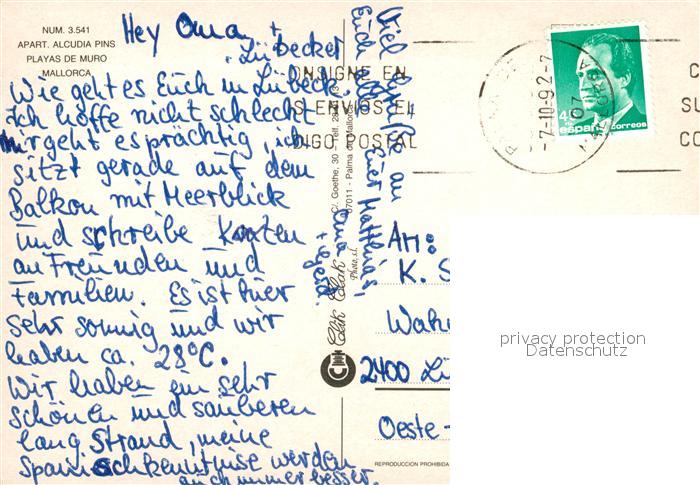 NUM. 3.541
APART. ALCUDIA PINS
PLAYAS DE MURO
MALLORCA
Hey Oma, +
Lübecker
Wie geht es Euch in Lübeck
Ich hoffe nicht schlecht
mir geht es prächtig, ich
sitzt gerade auf dem
Balkon mit Meerblick
und schreibe Karten
an Freunden und
Familien. Es ist hier
sehr sonnig und wir
haben ca. 28°C.
Wir haben ein sehr
schönen und sauberen
lang Strand, meine
Spanischkenntnise werden
auch immer besser.
Viel Grüße an
Euch
Euer Matthias,
Oma
C/. Goethe, 30 - Telf. 28
07011 - Palma de Mallorca
Clik Clak
Photo, s.l.
ONSIGNE EN
S ENVIOS EL
DIGO POSTAL
-7-10-92-7
07
4
españa correos
C
SU
CO
An:
K. S
Wak
2400 Lü
Oeste-
REPRODUCCION PROHIBIDA
privacy protection
Datenschutz